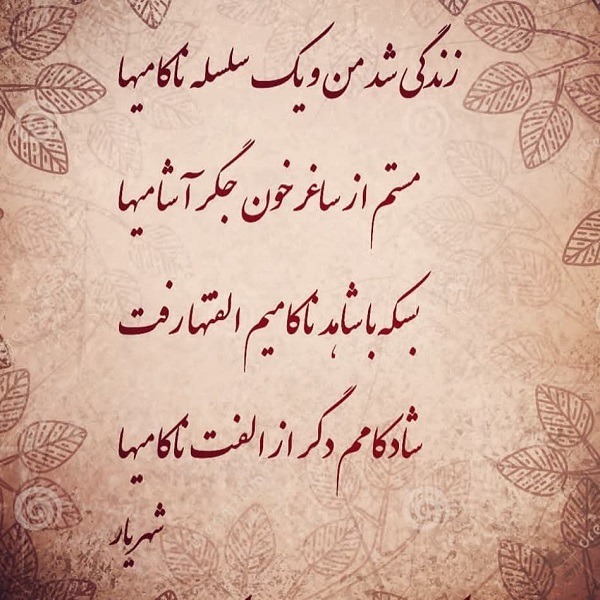 زندگی شد من و یک سلسله ناکامیها
مستم از ساغر خون جگر آشامیها
بسکه با شاهد ناکامیم الفتها رفت
شادکامم دگر از الفت ناکامیها
شهریار